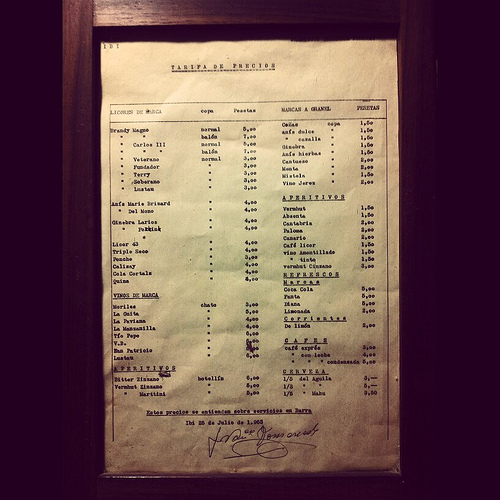 IBI
TARIFA DE PRECIOS
LICORES DE MARCA copa Pesetas
Brandy Magno normal 5,00
" " balón 7,00
" Carlos III normal 5,00
" " " balón 7,00
" Veterano normal 3,00
" Fundador " 3,00
" Terry " 3,00
" Soberano " 3,00
" Lustau " 3,00
Anís Marie Brizard " 4,00
" Del Mono " 4,00
Ginebra Larios " 4,00
" "
Licor 43 " 4,00
Triple Seco " 4,00
Ponche " 3,00
Calisay " 4,00
Cola Cortals " 4,00
Quina " 4,00
VINOS DE MARCA
Moriles chato 3,00
La Guita " 5,00
La Paviana " 4,00
La Manzanilla " 4,00
Tío Pepe " 5,00
V.B. "
San Patricio "
Lustau " 6,00
APERITIVOS
Bitter Zinzano botellín 6,00
Vermhut Zinzano " 5,00
" Martini " 5,00
MARCAS A GRANEL PESETAS
Cañas copa 1,50
anís dulce " 1,50
" cazalla " 1,50
Ginebra " 1,50
Anís hierbas " 1,50
Cantueso " 2,00
Menta " 2,00
Mistela " 1,50
Vino Jerez " 2,00
APERITIVOS
Vermhut " 1,50
Absenta " 1,50
Cantabria " 2,00
Paloma " 2,00
Canario " 2,00
Café licor " 1,50
vino Amontillado " 1,50
" tinto " 1,50
vermhut Cinzano " 3,00
REFRESCOS
Marcas
Coca Cola 5,00
Fanta 5,00
Diana 5,00
Limonada 2,00
Corrientes
De limón 2,00
CAFES
café exprés 3,00
" con leche 4,00
" " condensada 5,00
CERVEZA
1/5 del Aguila 5,—
1/5 " " 5,—
1/5 " Mahu 3,50
Estos precios se entienden sobre servicios en Barra
Ibi 25 de Julio de 1.963